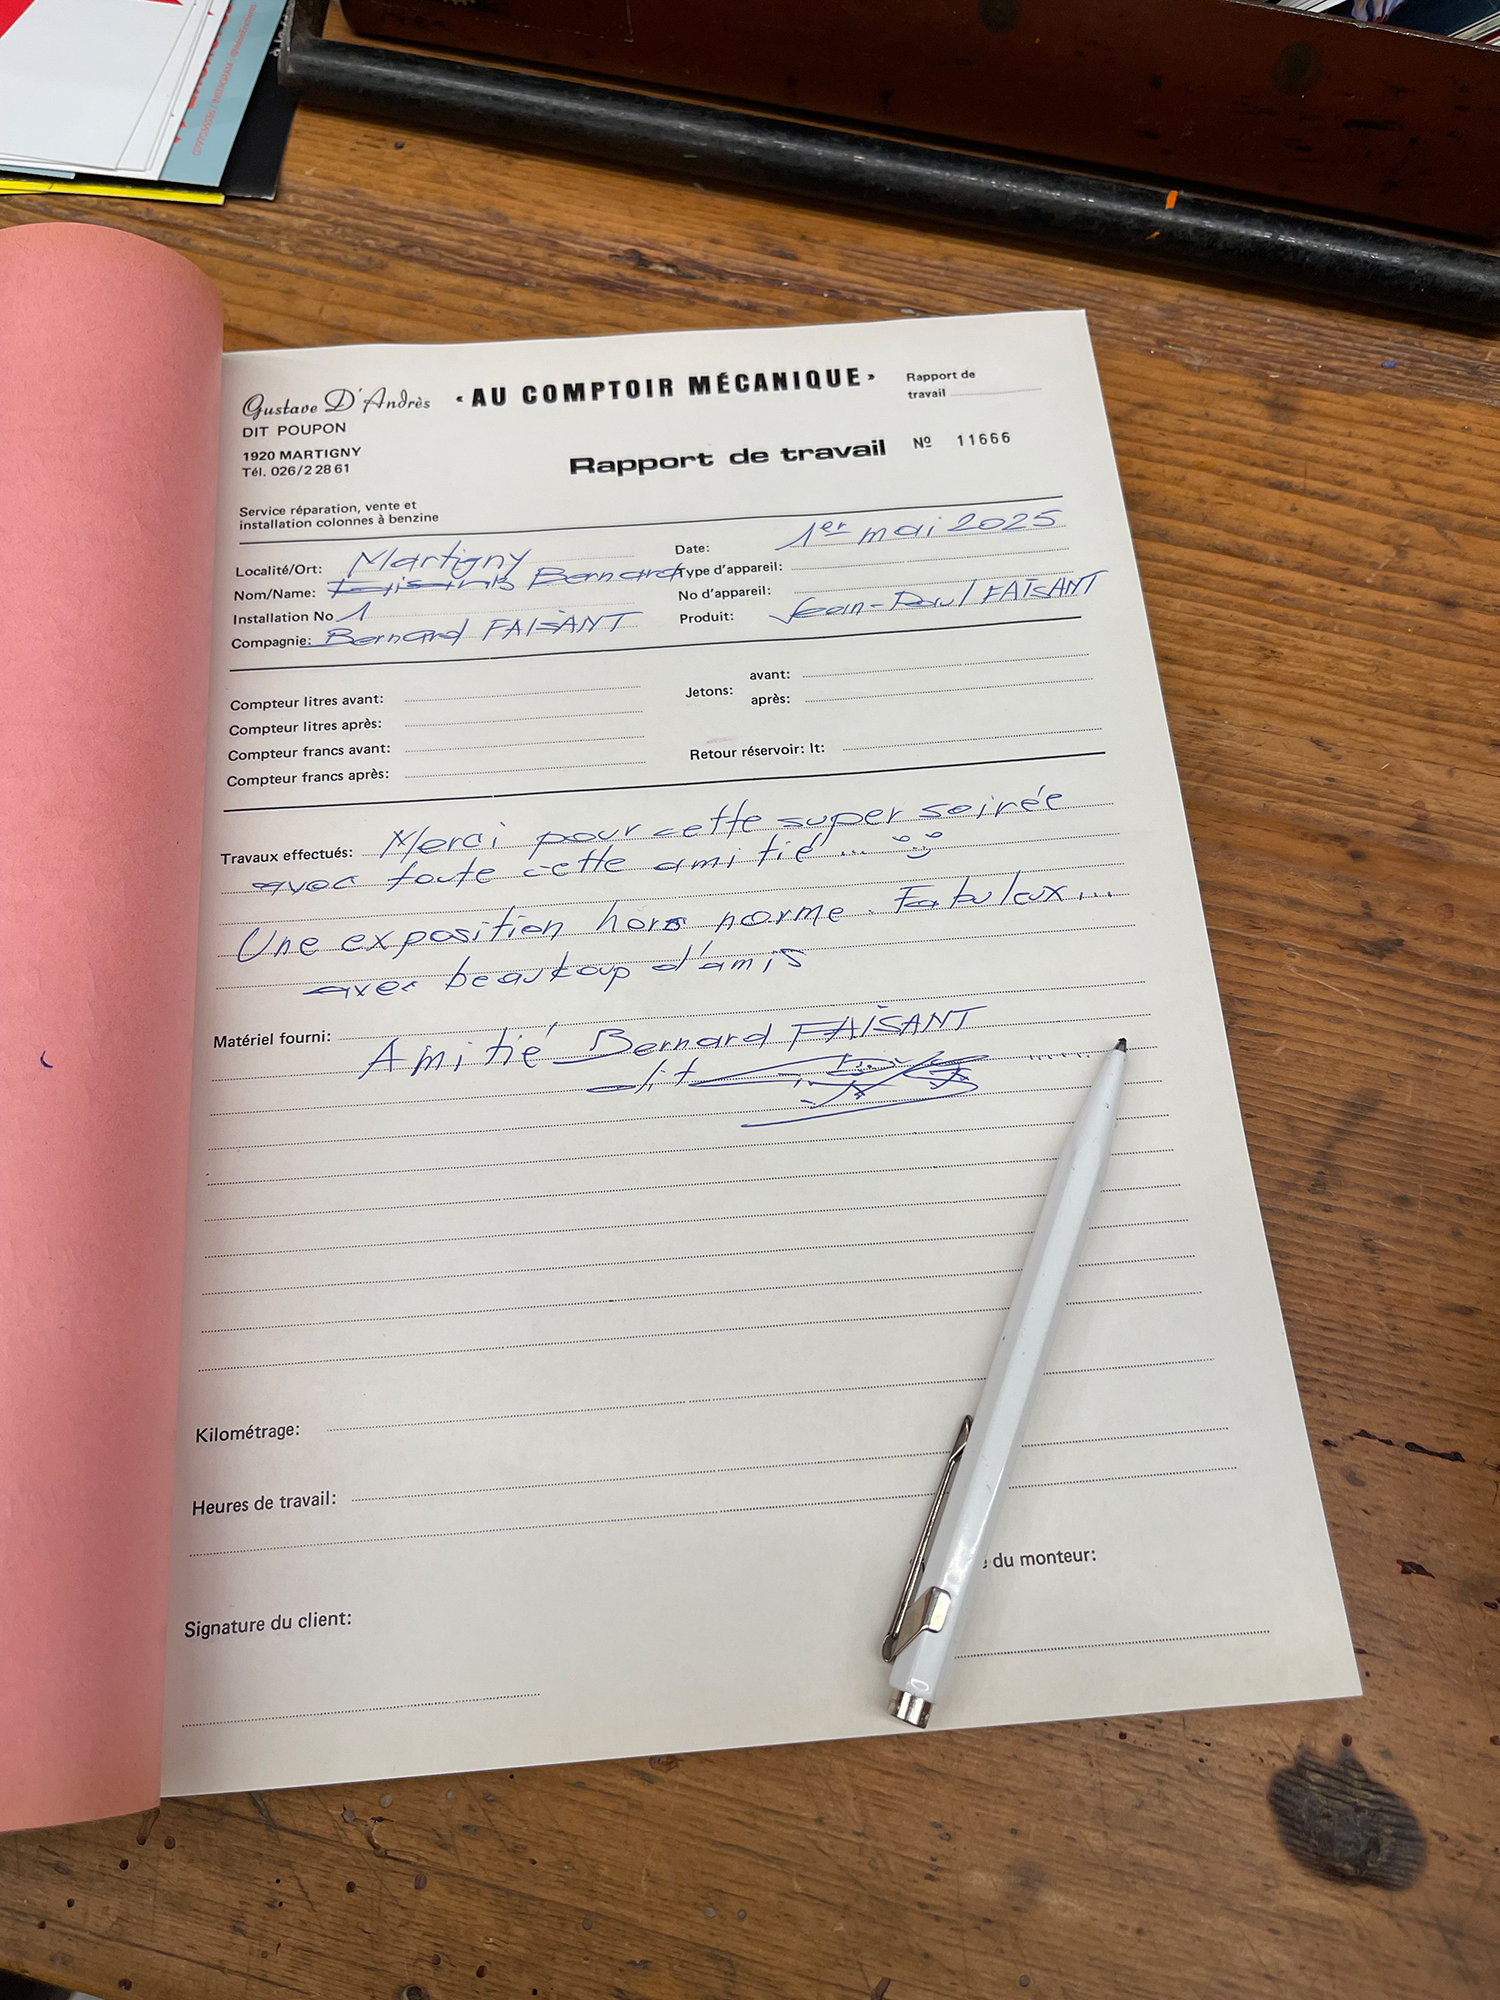 Gustave D'Andrès
DIT POUPON
1920 MARTIGNY
Tél. 026/2 28 61
« AU COMPTOIR MÉCANIQUE »
Rapport de
travail
Rapport de travail Nº 11666
Service réparation, vente et
installation colonnes à benzine
Localité/Ort: Martigny
Date: 1er mai 2025
Nom/Name: Bernard
Type d'appareil:
Installation No 1
No d'appareil:
Compagnie: Bernard FAISANT
Produit: Jean-Paul FAISANT
Compteur litres avant:
Compteur litres après:
Compteur francs avant:
Compteur francs après:
Jetons:
avant:
après:
Retour réservoir: lt:
Travaux effectués: Merci pour cette super soirée
avec toute cette amitié...
Une exposition hors norme. Fabuleux...
avec beaucoup d'amis
Matériel fourni:
Amitié Bernard FAISANT
dit
Kilométrage:
Heures de travail:
Signature du client:
du monteur: